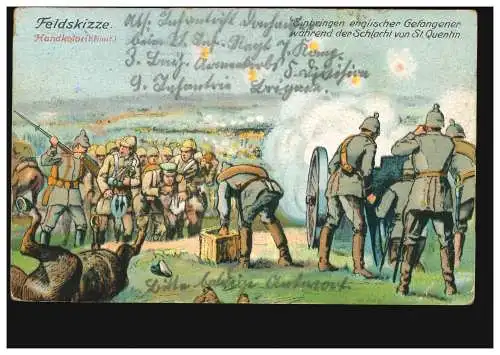 Feldskizze.
Handkolor
Einbringen englischer Gefangener
während der Schlacht von St. Quentin
Abs. Infanterist
beim 21. Inf. Regt. 7. Komp.
3. Armeekorps 5. Division
9. Infanterie Brigade.
Bitte Antwort